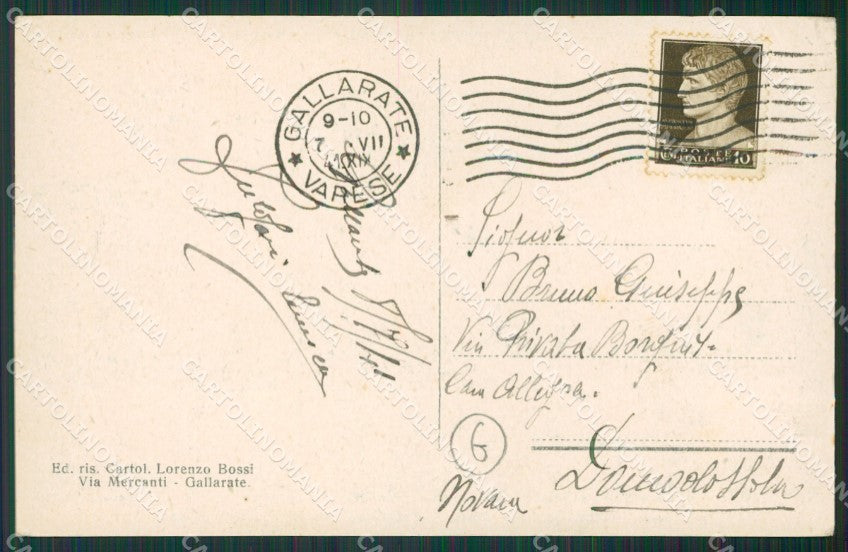 GALLARATE
9-10
7 VII
41 XIX
VARESE
POSTE
ITALIANE
10 10
Gallarate 7/7/41
Signor
Bruno Guiseppe
Via Privata
Casa Allegra.
6
Domodossola
Novara
Ed. ris. Cartol. Lorenzo Bossi
Via Mercanti - Gallarate.
CARTOLINOMANIA